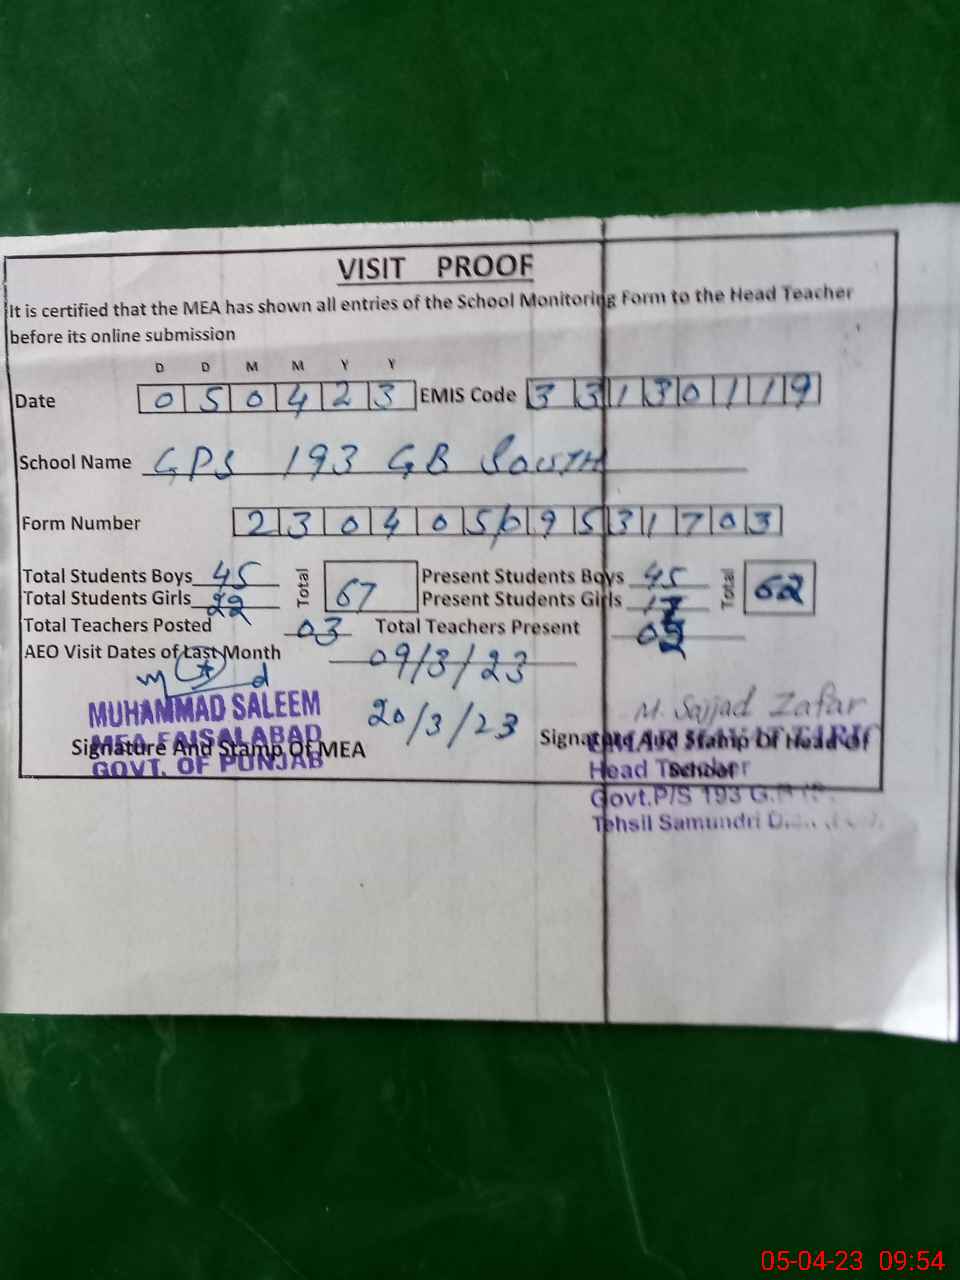 VISIT PROOF
It is certified that the MEA has shown all entries of the School Monitoring Form to the Head Teacher
before its online submission
D D M M Y Y
Date 0 5 0 4 2 3 EMIS Code 3 3 1 3 0 1 1 9
School Name GPS 193 GB SOUTH
Form Number 2 3 0 4 0 5 0 9 5 3 1 7 0 3
Total Students Boys 45 Total 67 Present Students Boys 45 Total 62
Total Students Girls 22 Present Students Girls 17
Total Teachers Posted 03 Total Teachers Present 02
AEO Visit Dates of Last Month 09/3/23
20/3/23
MUHAMMAD SALEEM
MEA FAISALABAD
GOVT. OF PUNJAB
Signature And Stamp Of MEA
M. Sajjad Zafar
Signature And Stamp Of Head Of
School
Head Teacher
Govt.P/S 193 G.B
Tehsil Samundri
05-04-23 09:54